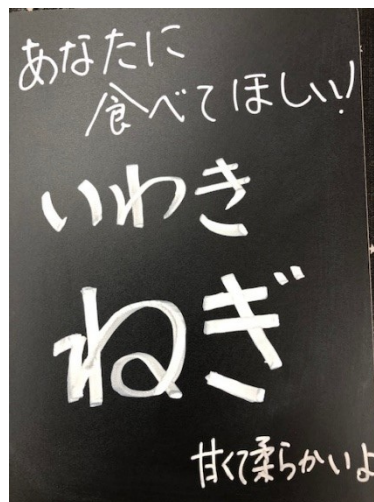 あなたに
食べてほしい!
いわき
ねぎ
甘くて柔らかいよ